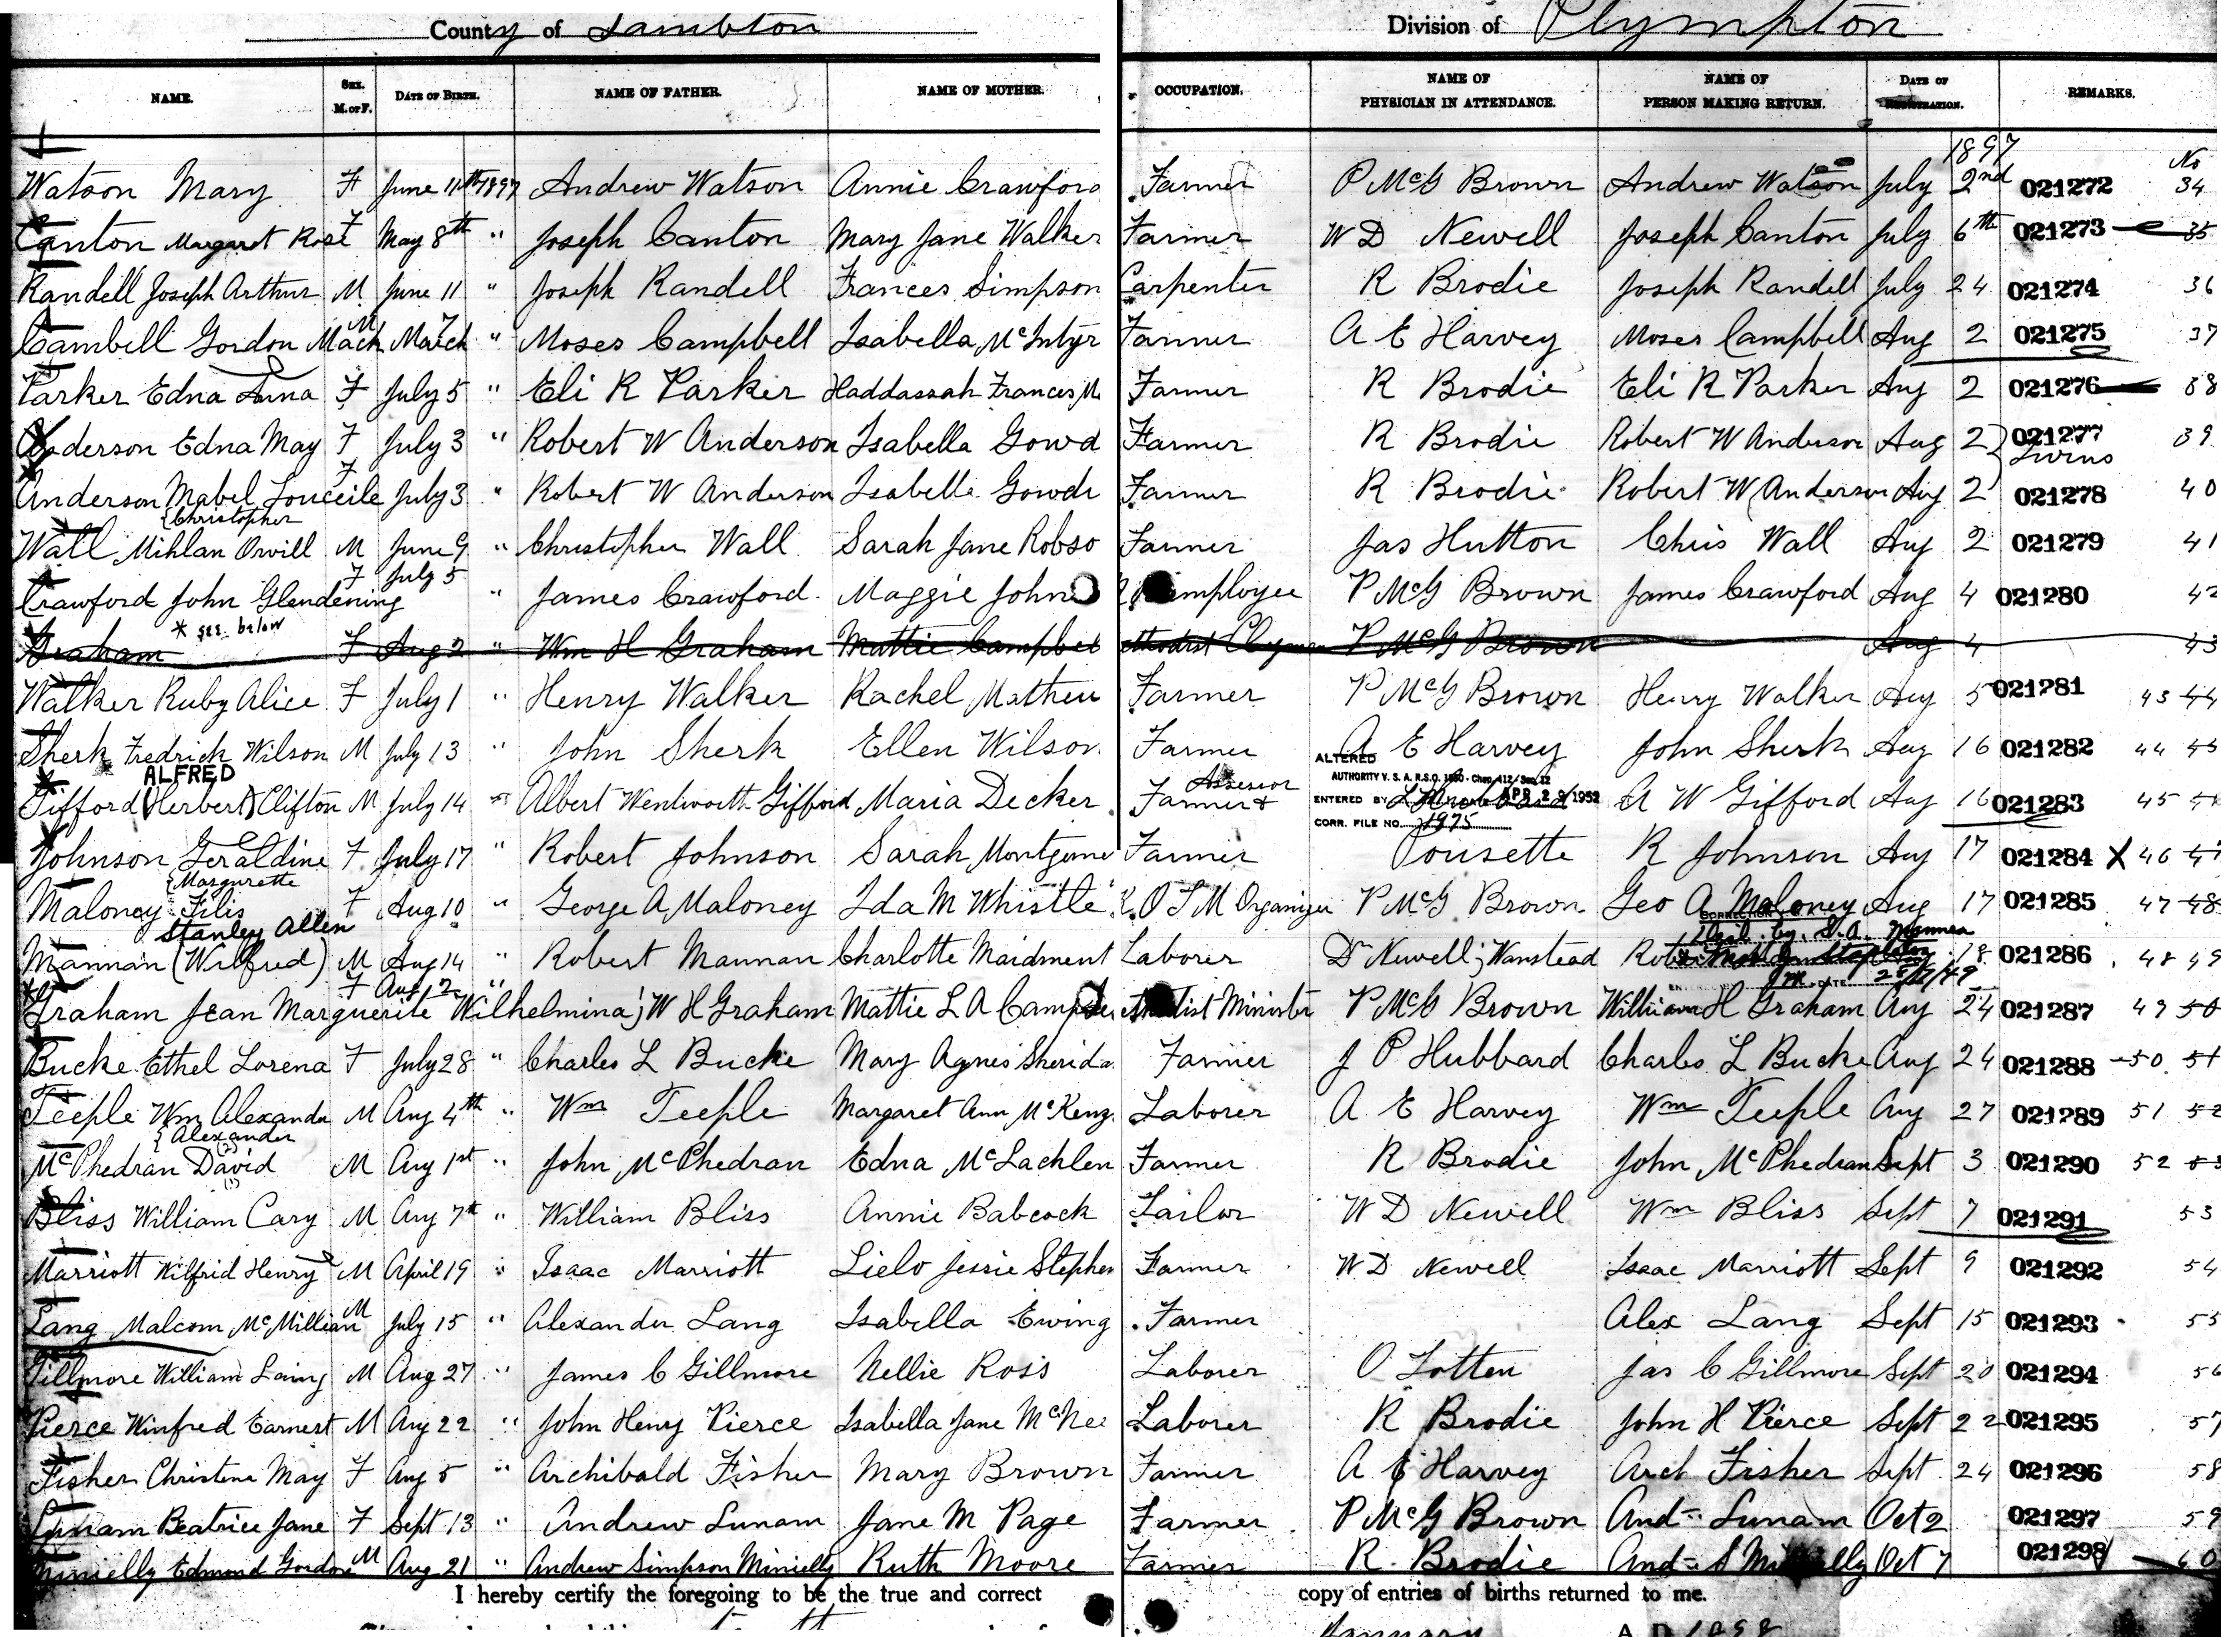 County of Lambton Division of Plympton
NAME. SEX. M. or F. DATE OF BIRTH. NAME OF FATHER. NAME OF MOTHER. OCCUPATION. NAME OF PHYSICIAN IN ATTENDANCE. NAME OF PERSON MAKING RETURN. DATE OF REGISTRATION. REMARKS.
1897 No
Watson Mary F June 11th 1897 Andrew Watson Annie Crawford Farmer P McG Brown Andrew Watson July 2nd 021272 34
Canton Margaret Rose F May 8th " Joseph Canton Mary Jane Walker Farmer W D Newell Joseph Canton July 6th 021273 35
Randell Joseph Arthur M June 11 " Joseph Randell Frances Simpson Carpenter R Brodie Joseph Randell July 24 021274 36
Cambell Gordon Mack M March 7 " Moses Campbell Isabella McIntyr Farmer A E Harvey Moses Campbell Aug 2 021275 37
Parker Edna Anna F July 5 " Eli R Parker Haddassah Frances M Farmer R Brodie Eli R Parker Aug 2 021276 38
Anderson Edna May F July 3 " Robert W Anderson Isabella Gowd Farmer R Brodie Robert W Anderson Aug 2 021277 39
Twins
Anderson Mabel Louceile F July 3 " Robert W Anderson Isabella Gowdi Farmer R Brodie Robert W Anderson Aug 2 021278 40
{Christopher
Wall Mihlan Orvill M June 9 " Christopher Wall Sarah Jane Robso Farmer Jas Hutton Chris Wall Aug 2 021279 41
Crawford John Glendening F July 5 " James Crawford Maggie Johns employee P McG Brown James Crawford Aug 4 021280 42
* see below
Graham F Aug 2 " Wm H Graham Mattie Campbel P McG Brown Aug 4 43
Walker Ruby Alice F July 1 " Henry Walker Rachel Matheu Farmer P McG Brown Henry Walker Aug 5 021281 43 44
Sherk Fredrick Wilson M July 13 " John Sherk Ellen Wilson Farmer A E Harvey John Sherk Aug 16 021282 44 45
ALFRED ALTERED
AUTHORITY V. S. A. R.S.O. 1950 - Chap. 412/Sec. 22
Gifford (Herbert) Clifton M July 14 " Albert Wentworth Gifford Maria Decker Farmer & Assessor ENTERED BY APR 2 9 1952 A W Gifford Aug 16 021283 45
CORR. FILE NO. 1975
Johnson Geraldine F July 17 " Robert Johnson Sarah Montgome Farmer Pousette R Johnson Aug 17 021284 X 46 47
{Margurette
Maloney Filis F Aug 10 " George A Maloney Ida M Whistle K. O T M Organizer P McG Brown Geo A Maloney Aug 17 021285 47 48
Stanley Allen CORRECTION
Mannan (Wilfred) M Aug 14 " Robert Mannan Charlotte Maidment Laborer Dr Newell; Wanstead 18 021286 48 49
DATE
Graham Jean Marguerite Wilhelmina; F Aug 2 " W H Graham Mattie L A Campbel Minister P McG Brown William H Graham Aug 24 021287 49 50
Bucke Ethel Lorena F July 28 " Charles L Bucke Mary Agnes Sherida Farmer J P Hubbard Charles L Bucke Aug 24 021288 50 51
Teeple Wm Alexander M Aug 4th " Wm Teeple Margaret Ann McKenz Laborer A E Harvey Wm Teeple Aug 27 021289 51 52
{Alexander
McPhedran David M Aug 1st " John McPhedran Edna McLachlen Farmer R Brodie John McPhedran Sept 3 021290 52 53
Bliss William Cary M Aug 7th " William Bliss Annie Babcock Tailor W D Newell Wm Bliss Sept 7 021291 53
Marriott Wilfrid Henry M April 19 " Isaac Marriott Lielo Jessie Stephen Farmer W D Newell Isaac Marriott Sept 9 021292 54
Lang Malcom McMillian M July 15 " Alexander Lang Isabella Ewing Farmer Alex Lang Sept 15 021293 55
Gillmore William Laing M Aug 27 " James C Gillmore Nellie Ross Laborer O Totten Jas C Gillmore Sept 20 021294 56
Pierce Winfred Earnest M Aug 22 " John Henry Pierce Isabella Jane McNee Laborer R Brodie John H Pierce Sept 22 021295 57
Fisher Christena May F Aug 5 " Archibald Fisher Mary Brown Farmer A E Harvey Arch Fisher Sept 24 021296 58
Lunam Beatrice Jane F Sept 13 " Andrew Lunam Jane M Page Farmer P McG Brown And= Lunam Oct 2 021297 59
Minielly Edmond Gordon M Aug 21 " Andrew Simpson Minielly Ruth Moore Farmer R Brodie And= S Minielly Oct 7 021298 60
I hereby certify the foregoing to be the true and correct copy of entries of births returned to me.
January A. D. 1898